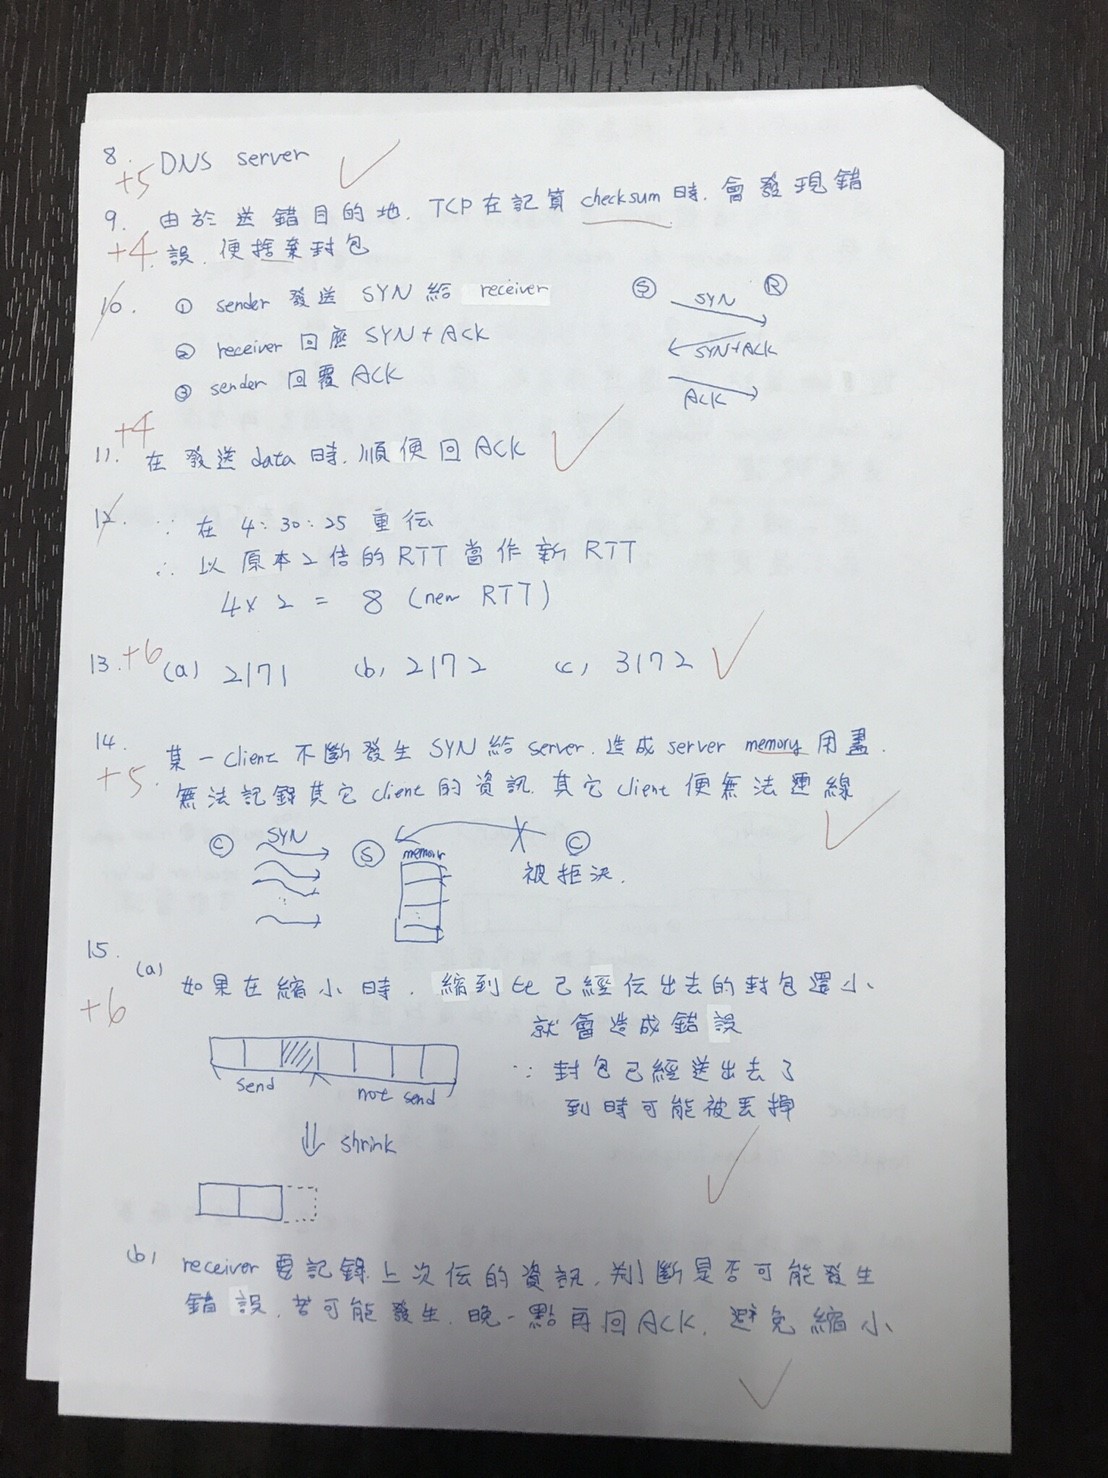 8. DNS server
+5
9. 由於送錯目的地, TCP在記算 checksum 時, 會發現錯
+4 誤, 便捨棄封包
10. ① sender 發送 SYN 給 receiver
② receiver 回應 SYN + ACK
③ sender 回覆 ACK
Ⓢ Ⓡ
SYN
SYN+ACK
ACK
+4
11. 在發送 data 時, 順便回 ACK
12. ∵ 在 4:30:25 重伝
∴ 以原本2倍的 RTT 當作新 RTT
4 x 2 = 8 (new RTT)
13. +6 (a) 2171 (b) 2172 (c) 3172
14. 某一 client 不斷發生 SYN 給 server, 造成 server memory 用盡.
+5 無法記錄其它 client 的資訊, 其它 client 便無法連線
Ⓒ SYN Ⓢ memory Ⓒ
被拒決.
15.
+6
(a) 如果在縮小時, 縮到比已經伝出去的封包還小
就會造成錯誤
∵ 封包已經送出去了
到時可能被丟掉
send not send
shrink
(b) receiver 要記錄上次伝的資訊, 判斷是否可能發生
錯誤, 若可能發生, 晚一點再回 ACK, 避免縮小